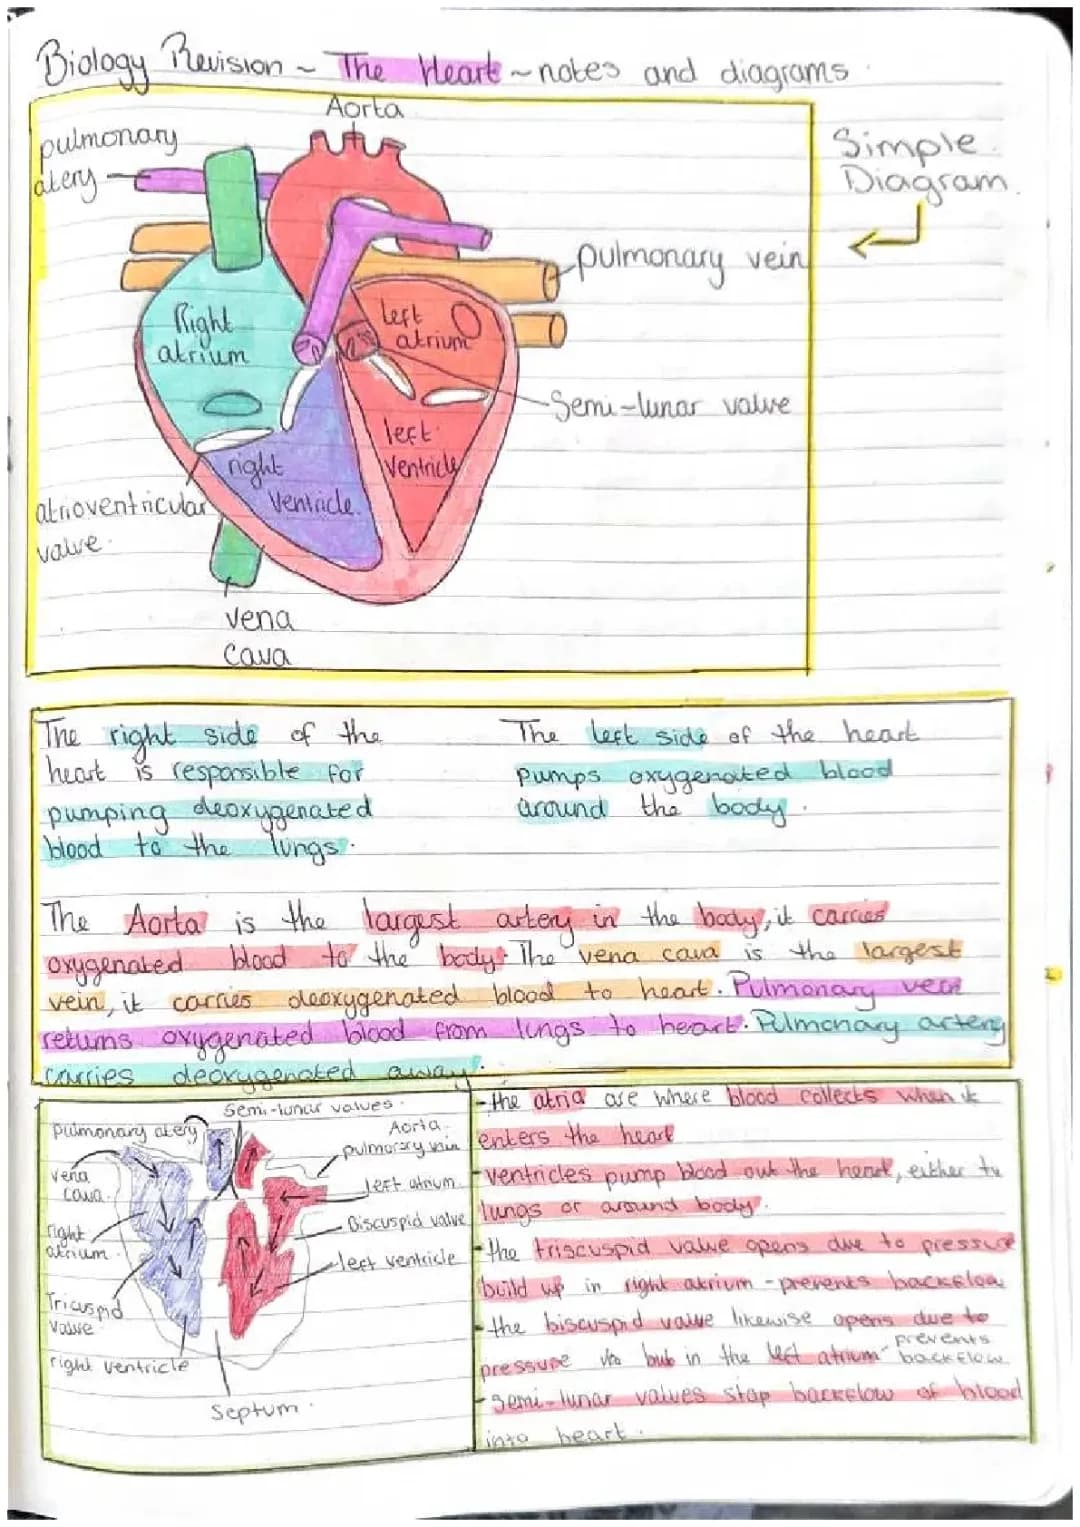 Biology Revision ~ The Heart ~ notes and diagrams.
Aorta
pulmonary
atery
Simple
Diagram
pulmonary vein
Right
atrium
left
atrium
Semi-lunar valve
left
ventricle
right
Ventricle
atrioventricular
valve
vena
cava
The right side of the
heart is responsible for
pumping deoxygenated
blood to the lungs.
The left side of the heart
pumps oxygenated blood
around the body.
The Aorta is the largest artery in the body, it carries
oxygenated blood to the body. The vena cava is the largest
vein, it carries deoxygenated blood to heart. Pulmonary vein
returns oxygenated blood from lungs to heart. Pulmonary artery
carries deoxygenated away.
Semi-lunar valves.
pulmonary atery
Aorta
pulmonary vein
vena
cava
left atrium
right
atrium
Biscuspid valve
left ventricle
Tricuspid
valve
right ventricle
Septum.
- the atria are where blood collects when it
enters the heart
- ventricles pump blood out the heart, either to
lungs or around body.
- the triscuspid valve opens due to pressure
build up in right atrium - prevents backflow
- the biscuspid valve likewise opens due to
pressure in the left atrium - prevents
backflow
- semi-lunar valves stop backflow of blood
into heart.